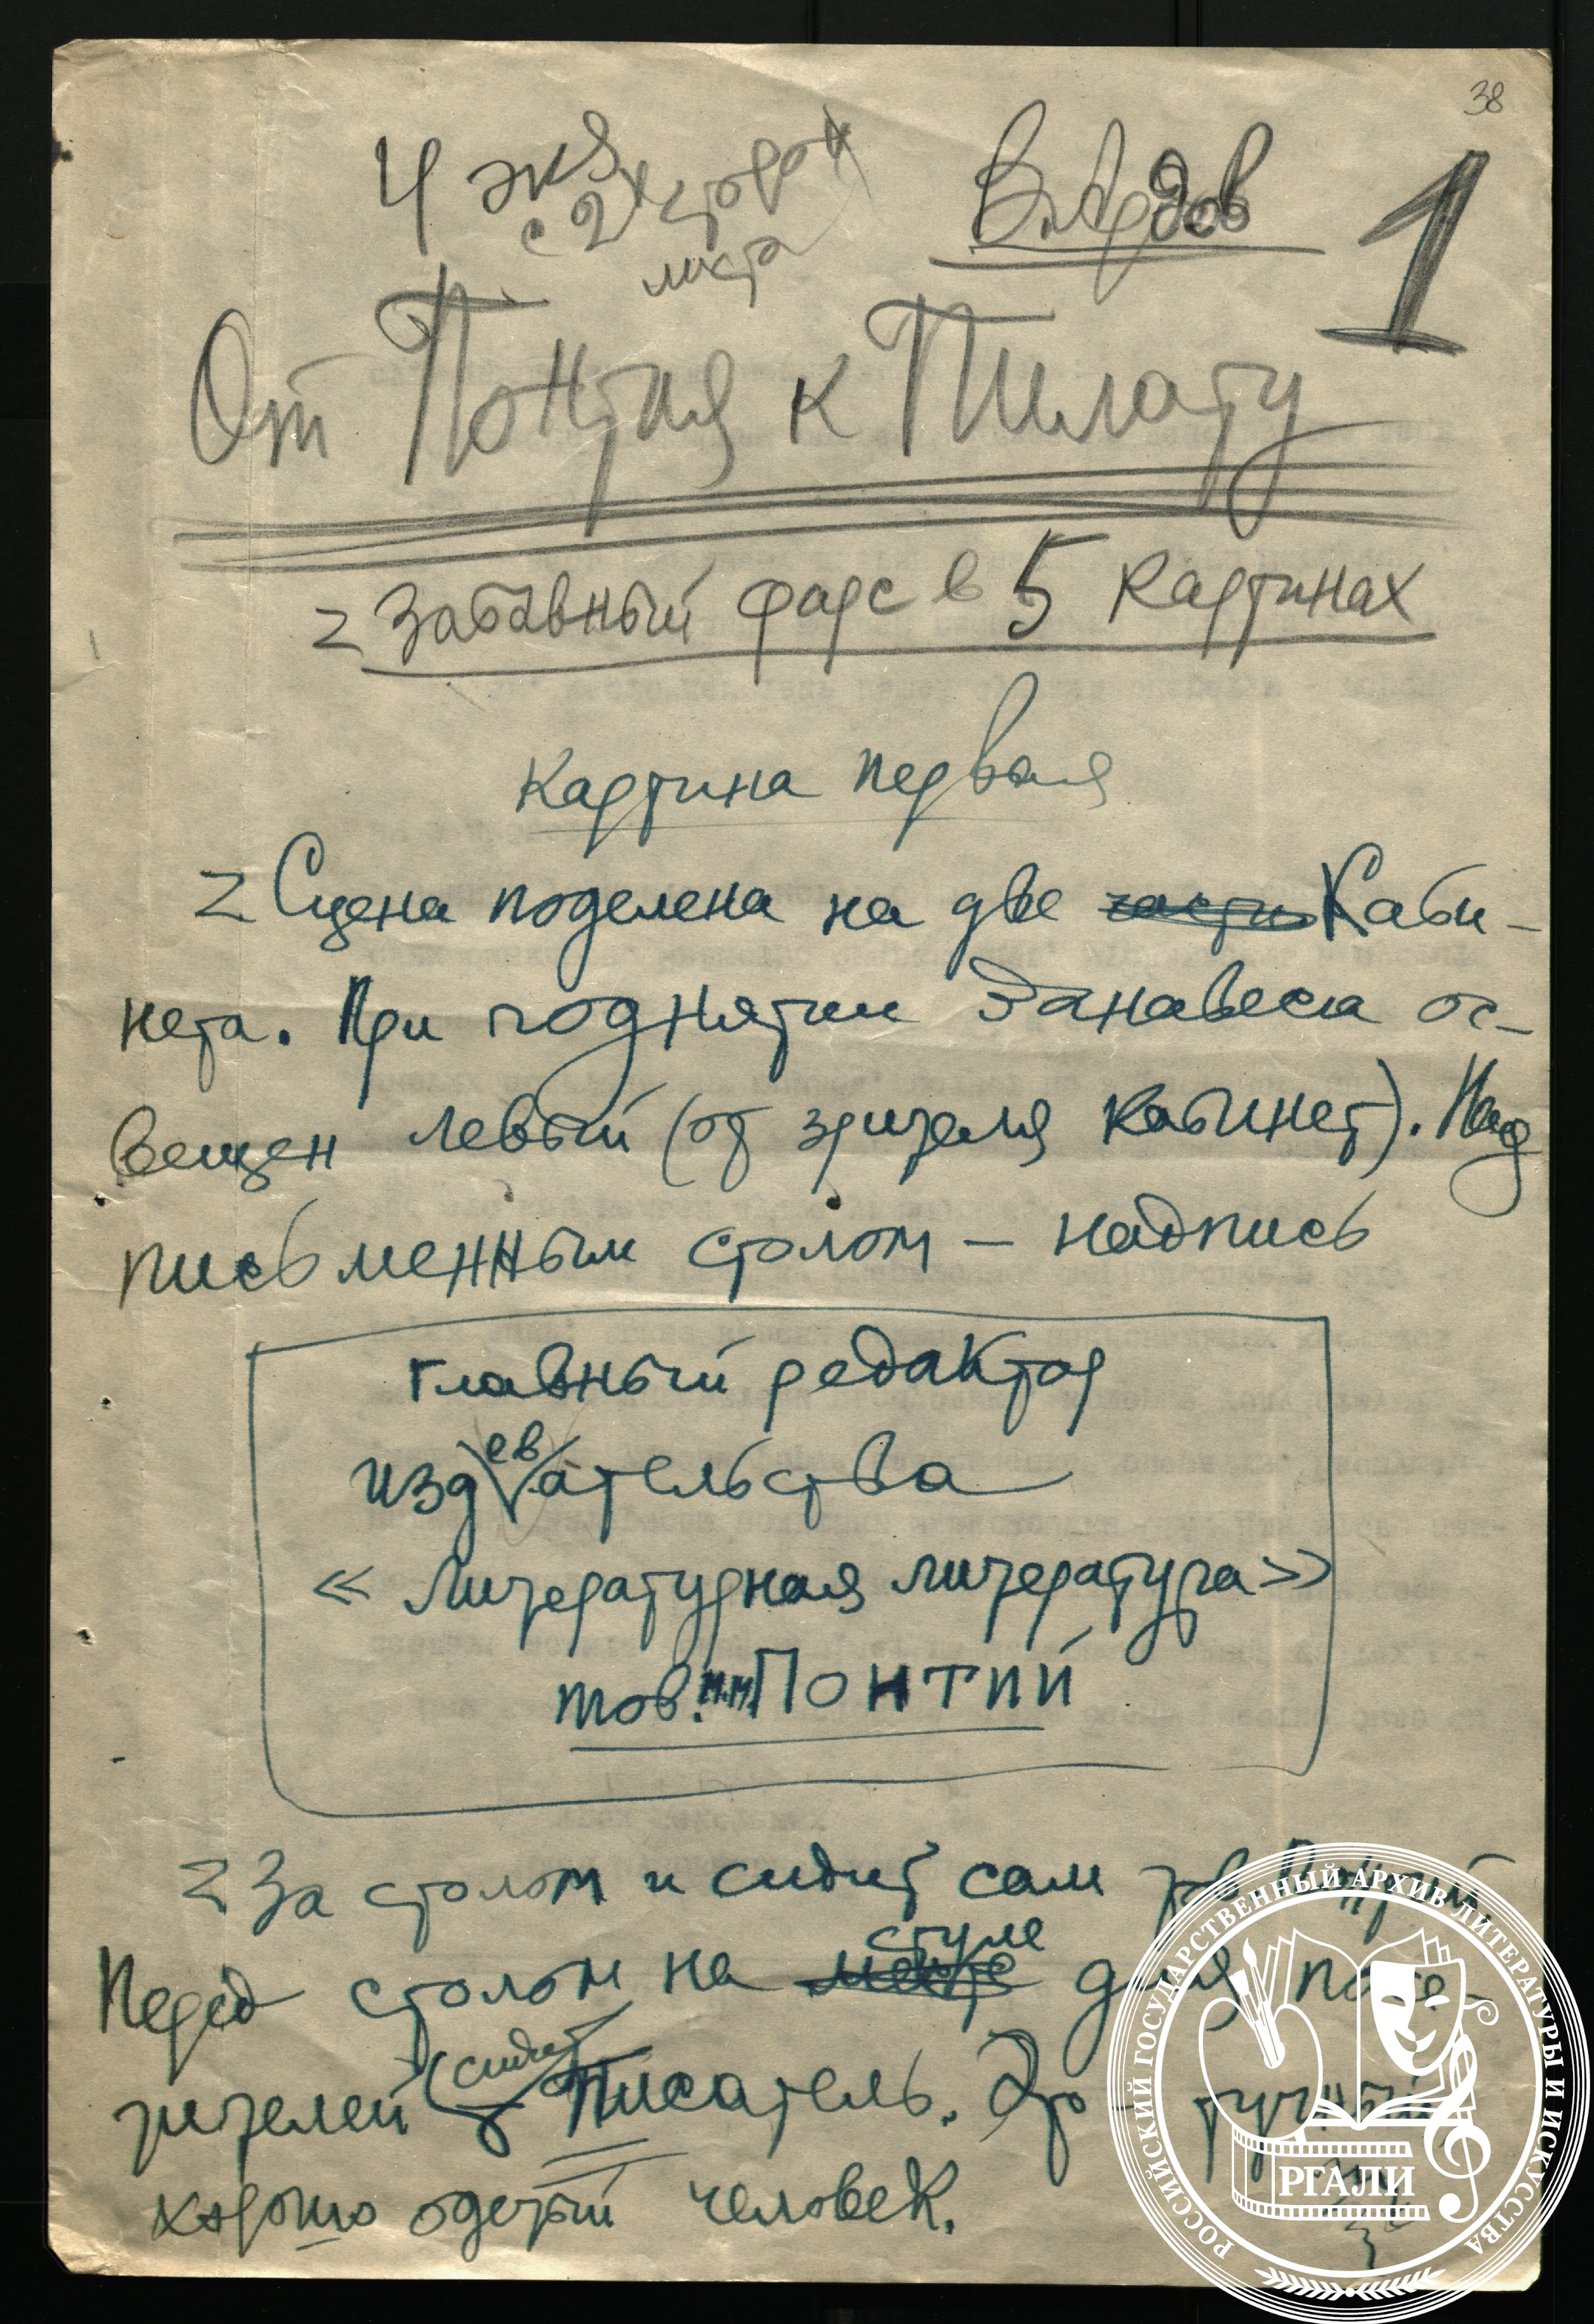 38
4 экз
с 2х сторон
листа
В. Ардов
1
От Понтия к Пилату
Забавный фарс в 5 картинах
Картина первая
Сцена поделена на две части Каби-
нета. При поднятии занавеса ос-
вещен левый (от зрителя кабинет). Над
письменным столом – надпись
Главный редактор
ев
издательства
« Литературная литература »
тов. М.М. Понтий
За столом и сидит сам тов Понтий.
стуле
Перед столом на месте для посе-
сидит
тителей Писатель. Это тучный,
хорошо одетый человек.
РОССИЙСКИЙ ГОСУДАРСТВЕННЫЙ АРХИВ ЛИТЕРАТУРЫ И ИСКУССТВА
РГАЛИ